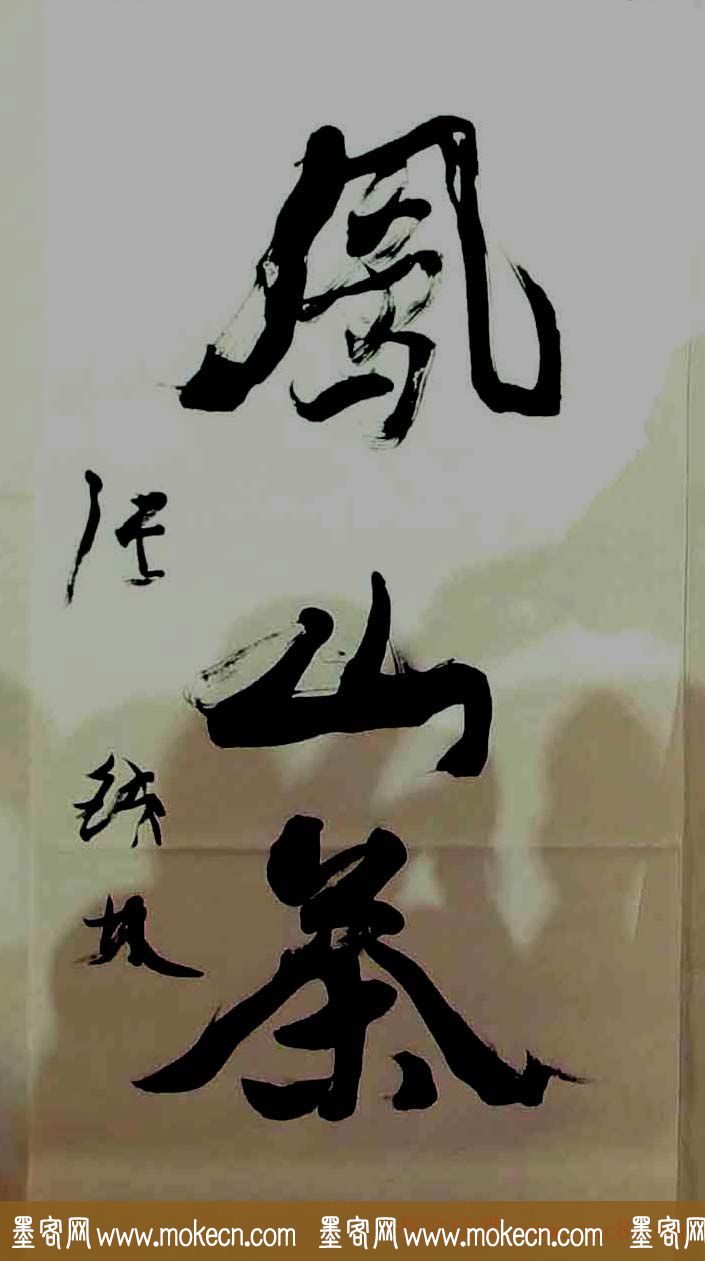 鳳山茶
墨客网 www.mokecn.com 墨客网 www.mokecn.com 墨客网